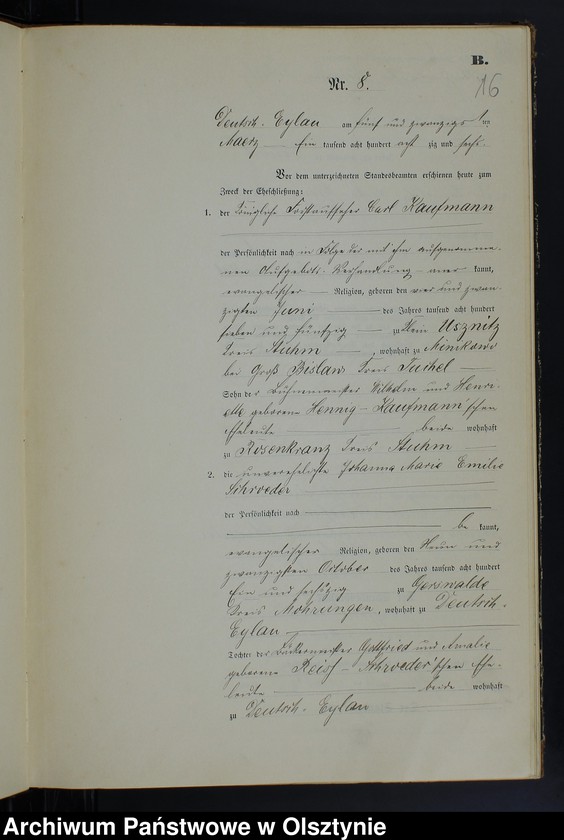 B.
16
Nr. 8.
Deutsch-Eylau am fünf und zwanzigsten
Maerz Ein tausend acht hundert acht zig und sechs
Vor dem unterzeichneten Standesbeamten erschienen heute zum
Zweck der Eheschließung:
1. der Königliche Forstaufseher Carl Kaufmann
der Persönlichkeit nach in Folge der mit ihm aufgenomme-
nen Aufgebots-Verhandlung aner kannt,
evangelischer Religion, geboren den vier und zwan-
zigsten Juni des Jahres tausend acht hundert
sieben und fünfzig zu Klein Usznitz
Kreis Stuhm, wohnhaft zu Minikowo
bei Groß Bislaw Kreis Tuchel
Sohn der Bühnenmeister Wilhelm und Henri-
ette geborene Hennig-Kaufmann'schen
Eheleute beide wohnhaft
zu Rosenkranz Kreis Stuhm
2. die unverehelichte Johanna Marie Emilie
Schroeder
der Persönlichkeit nach
be kannt,
evangelischer Religion, geboren den Neun und
zwanzigsten October des Jahres tausend acht hundert
Ein und sechszig zu Gerswalde
Kreis Mohrungen, wohnhaft zu Deutsch-
Eylau
Tochter der Bäckermeister Gottfried und Amalie
geborene Reiss-Schroeder'schen Ehe-
leute beide wohnhaft
zu Deutsch-Eylau
Archiwum Państwowe w Olsztynie